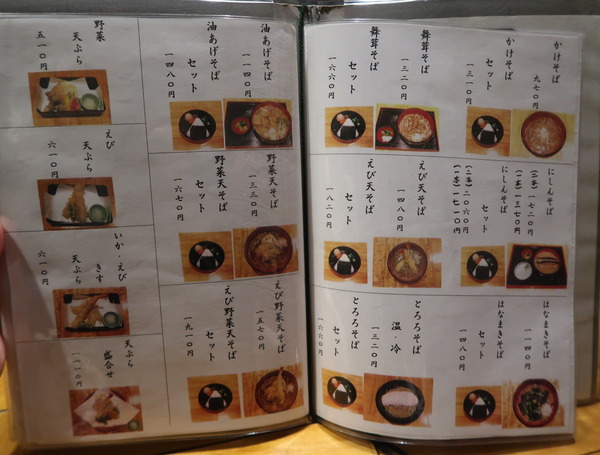 かけそば
九七〇円
かけそば
セット
一三一〇円
舞茸そば
一三二〇円
舞茸そば
セット
一六六〇円
にしんそば
(二本)一七二〇円
(一本)一三七〇円
にしんそば
セット
(二本)二〇六〇円
(一本)一七一〇円
えび天そば
一四八〇円
えび天そば
セット
一八二〇円
はなまきそば
一一四〇円
はなまきそば
セット
一四八〇円
とろろそば
温・冷
一三二〇円
とろろそば
セット
一六六〇円
油あげそば
一一四〇円
油あげそば
セット
一四八〇円
野菜天そば
一三三〇円
野菜天そば
セット
一六七〇円
えび野菜天そば
一五七〇円
えび野菜天そば
セット
一九一〇円
野菜
天ぷら
五一〇円
えび
天ぷら
六一〇円
いか・えび
きす
天ぷら
六一〇円
天ぷら
盛合せ
一一一〇円